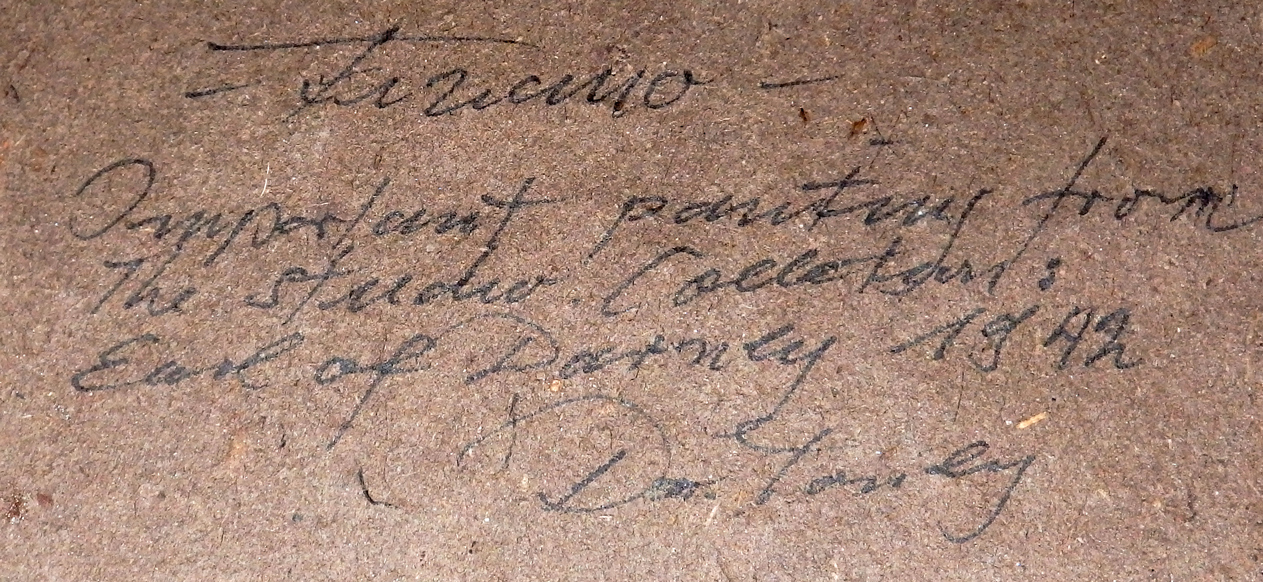 Important painting from
The Studio Collection:
Earl of Darnley 1942
Dr.